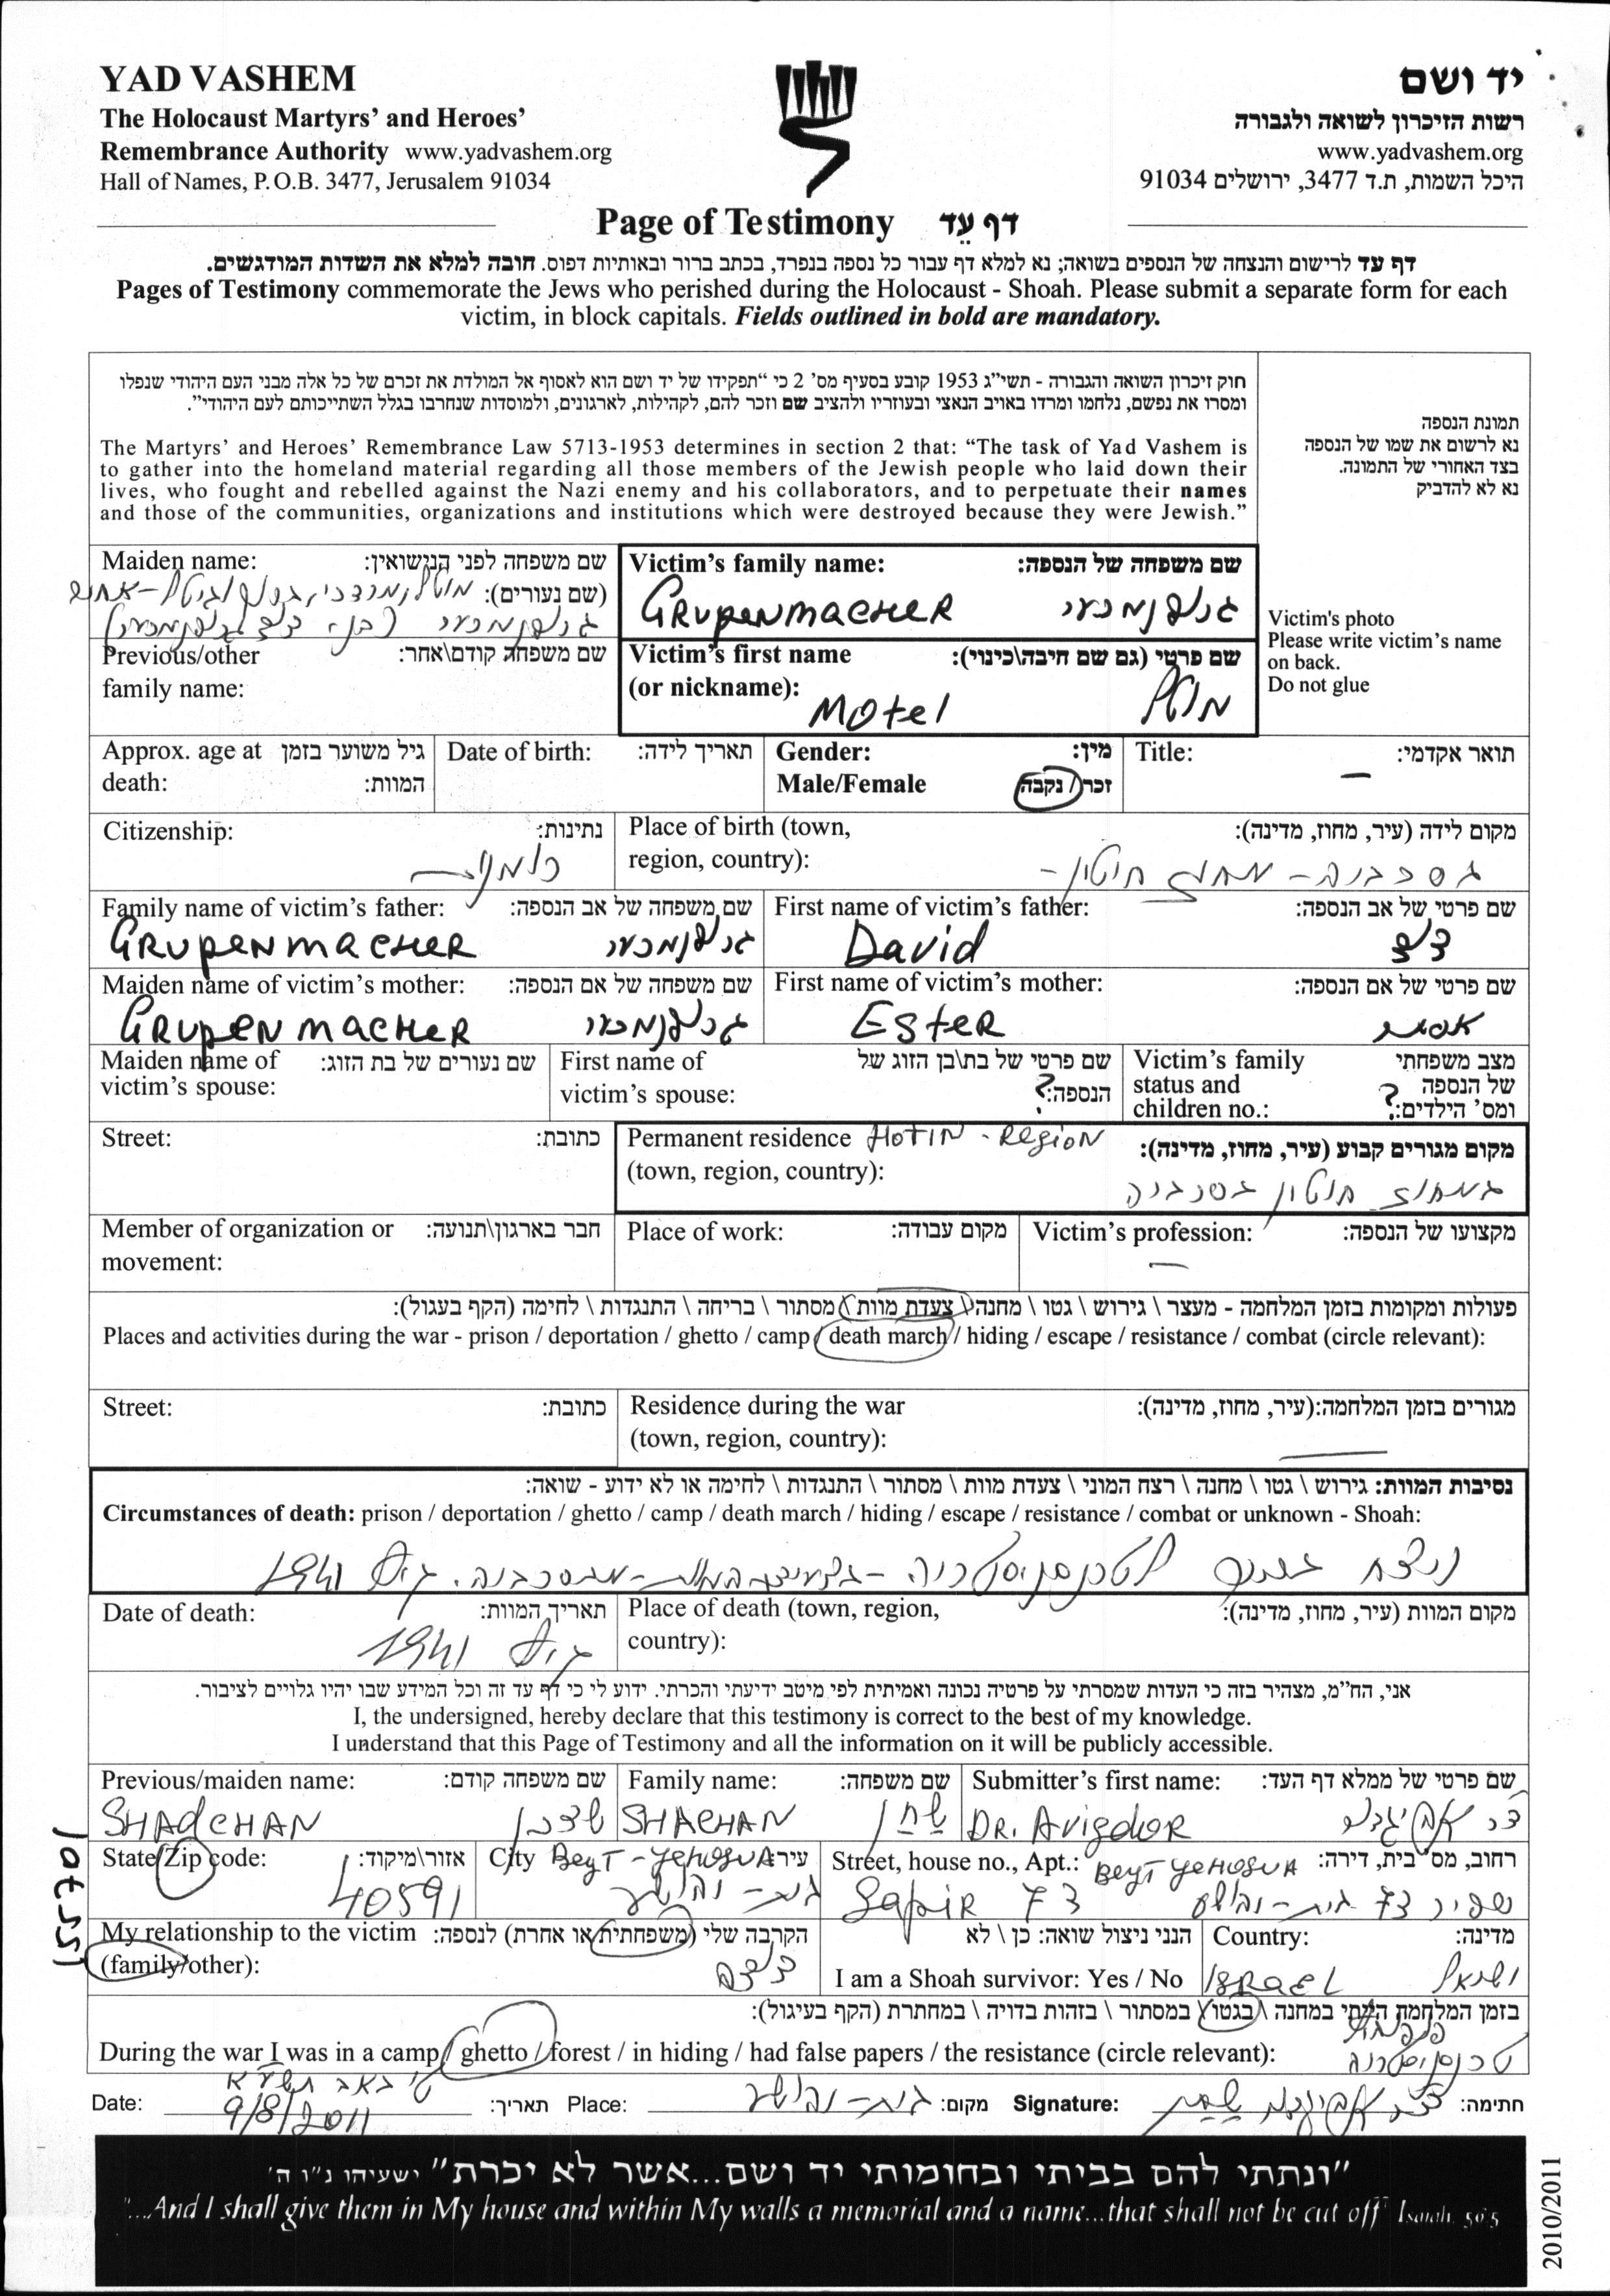 YAD VASHEM
The Holocaust Martyrs' and Heroes'
Remembrance Authority www.yadvashem.org
Hall of Names, P.O.B. 3477, Jerusalem 91034
יד ושם
רשות הזיכרון לשואה ולגבורה
www.yadvashem.org
היכל השמות, ת.ד 3477, ירושלים 91034
Page of Testimony דף עֵד
דף עד לרישום והנצחה של הנספים בשואה; נא למלא דף עבור כל נספה בנפרד, בכתב ברור ובאותיות דפוס. חובה למלא את השדות המודגשים.
Pages of Testimony commemorate the Jews who perished during the Holocaust - Shoah. Please submit a separate form for each
victim, in block capitals. Fields outlined in bold are mandatory.
חוק זיכרון השואה והגבורה - תשי"ג 1953 קובע בסעיף מס' 2 כי "תפקידו של יד ושם הוא לאסוף אל המולדת את זכרם של כל אלה מבני העם היהודי שנפלו
ומסרו את נפשם, נלחמו ומרדו באויב הנאצי ובעוזריו ולהציב שם וזכר להם, לקהילות, לארגונים, ולמוסדות שנחרבו בגלל השתייכותם לעם היהודי".
The Martyrs' and Heroes' Remembrance Law 5713-1953 determines in section 2 that: "The task of Yad Vashem is
to gather into the homeland material regarding all those members of the Jewish people who laid down their
lives, who fought and rebelled against the Nazi enemy and his collaborators, and to perpetuate their names
and those of the communities, organizations and institutions which were destroyed because they were Jewish."
תמונת הנספה
נא לרשום את שמו של הנספה
בצד האחורי של התמונה.
נא לא להדביק
Victim's photo
Please write victim's name
on back.
Do not glue
Maiden name: שם משפחה לפני הנישואין:
(שם נעורים):
Victim's family name: שם משפחה של הנספה:
GRUPENMACHER גרופנמכר
Previous/other שם משפחה קודם\אחר:
family name:
Victim's first name שם פרטי (גם שם חיבה\כינוי):
(or nickname):
Motel מוטל
Approx. age at גיל משוער בזמן
death: המוות:
Date of birth: תאריך לידה:
Gender: מין:
Male/Female זכר / נקבה
Title: תואר אקדמי:
—
Citizenship: נתינות:
Place of birth (town, מקום לידה (עיר, מחוז, מדינה):
region, country):
בסרביה - מחוז חוטין -
Family name of victim's father: שם משפחה של אב הנספה:
GRUPENMACHER גרופנמכר
First name of victim's father: שם פרטי של אב הנספה:
David דוד
Maiden name of victim's mother: שם משפחה של אם הנספה:
GRUPENMACHER גרופנמכר
First name of victim's mother: שם פרטי של אם הנספה:
ESTER אסתר
Maiden name of שם נעורים של בת הזוג:
victim's spouse:
First name of שם פרטי של בת\בן הזוג של
victim's spouse: הנספה: ?
Victim's family מצב משפחתי
status and של הנספה
children no.: ומס' הילדים: ?
Street: כתובת:
Permanent residence HOTIN - Region מקום מגורים קבוע (עיר, מחוז, מדינה):
(town, region, country):
במחוז חוטין בסרביה
Member of organization or חבר בארגון\תנועה:
movement:
Place of work: מקום עבודה:
Victim's profession: מקצועו של הנספה:
—
פעולות ומקומות בזמן המלחמה - מעצר \ גירוש \ גטו \ מחנה \ צעדת מוות \ מסתור \ בריחה \ התנגדות \ לחימה (הקף בעגול):
Places and activities during the war - prison / deportation / ghetto / camp / death march / hiding / escape / resistance / combat (circle relevant):
Street: כתובת:
Residence during the war מגורים בזמן המלחמה:(עיר, מחוז, מדינה):
(town, region, country):
—
נסיבות המוות: גירוש \ גטו \ מחנה \ רצח המוני \ צעדת מוות \ מסתור \ התנגדות \ לחימה או לא ידוע - שואה:
Circumstances of death: prison / deportation / ghetto / camp / death march / hiding / escape / resistance / combat or unknown - Shoah:
נרצח בדרך לטרנסניסטריה - בצעידת המוות - מבסרביה. ביולי 1941
Date of death: תאריך המוות:
ביולי 1941
Place of death (town, region, מקום המוות (עיר, מחוז, מדינה):
country):
אני, הח"מ, מצהיר בזה כי העדות שמסרתי על פרטיה נכונה ואמיתית לפי מיטב ידיעתי והכרתי. ידוע לי כי דף עד זה וכל המידע שבו יהיו גלויים לציבור.
I, the undersigned, hereby declare that this testimony is correct to the best of my knowledge.
I understand that this Page of Testimony and all the information on it will be publicly accessible.
Previous/maiden name: שם משפחה קודם:
SHADCHAN שדכן
Family name: שם משפחה:
SHACHAN שחן
Submitter's first name: שם פרטי של ממלא דף העד:
DR. Avigdor דר אביגדור
State/Zip code: אזור\מיקוד:
40591
City Beyt-YEHOSUA עיר:
בית-יהושע
Street, house no., Apt.: BEYT YEHOSUA רחוב, מס' בית, דירה:
Sapir 73 ספיר 73 בית-יהושע
My relationship to the victim הקרבה שלי (משפחתית או אחרת) לנספה:
(family/other):
הנני ניצול שואה: כן \ לא
I am a Shoah survivor: Yes / No
Country: מדינה:
ISRAEL ישראל
בזמן המלחמה הייתי במחנה \ בגטו \ במסתור \ בזהות בדויה \ במחתרת (הקף בעיגול):
During the war I was in a camp / ghetto / forest / in hiding / had false papers / the resistance (circle relevant):
טרנסניסטריה
ט' באב תשע"א
Date: 9/8/2011 תאריך: Place: בית-יהושע מקום: Signature: דר אביגדור שחן חתימה:
"ונתתי להם בביתי ובחומותי יד ושם...אשר לא יכרת" ישעיהו נ"ו ה'
"...And I shall give them in My house and within My walls a memorial and a name...that shall not be cut off" Isaiah 56:5
2010/2011